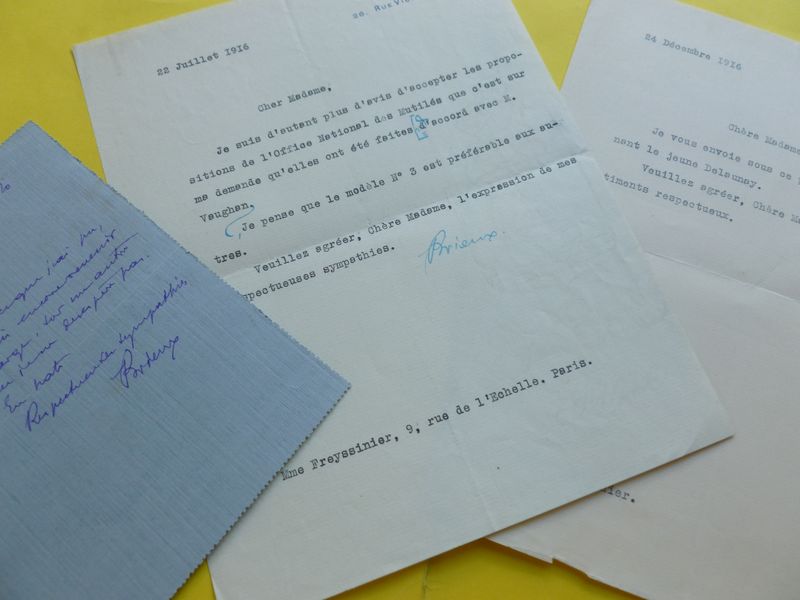 26, RUE VI
22 Juillet 1916
Cher Madame,
Je suis d'autant plus d'avis d'accepter les propo-
sitions de l'Office National des Mutilés que c'est sur
ma demande qu'elles ont été faites d'accord avec M.
Vaughan.
Je pense que le modèle N° 3 est préférable aux au-
tres.
Veuillez agréer, Chère Madame, l'expression de mes
spectueuses sympathies.
Brieux.
Mme Freyssinier, 9, rue de l'Echelle. Paris.
24 Décembre 1916
Chère Madame
Je vous envoie sous ce
nant le jeune Delaunay.
Veuillez agréer, Chère Ma
timents respectueux.
ier.
j'ai pu,
encore
pas.
En hâte
Respectueuses sympathies
Brieux